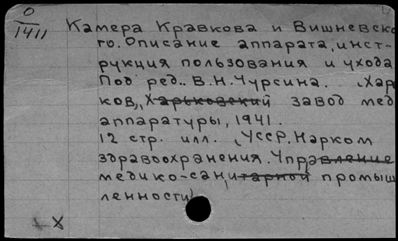 О
1411
Камера Кравкова и Вишневско
го. Описание аппарата, инст-
рукция пользования и ухода
Под ред. В.Н. Чурсина. (Харь
ков), Харьковский завод мед
аппаратуры, 1941.
12 стр. илл. (УССР. Нарком
здравоохранения. Управление
медико-санитарной промыш
ленности)
X